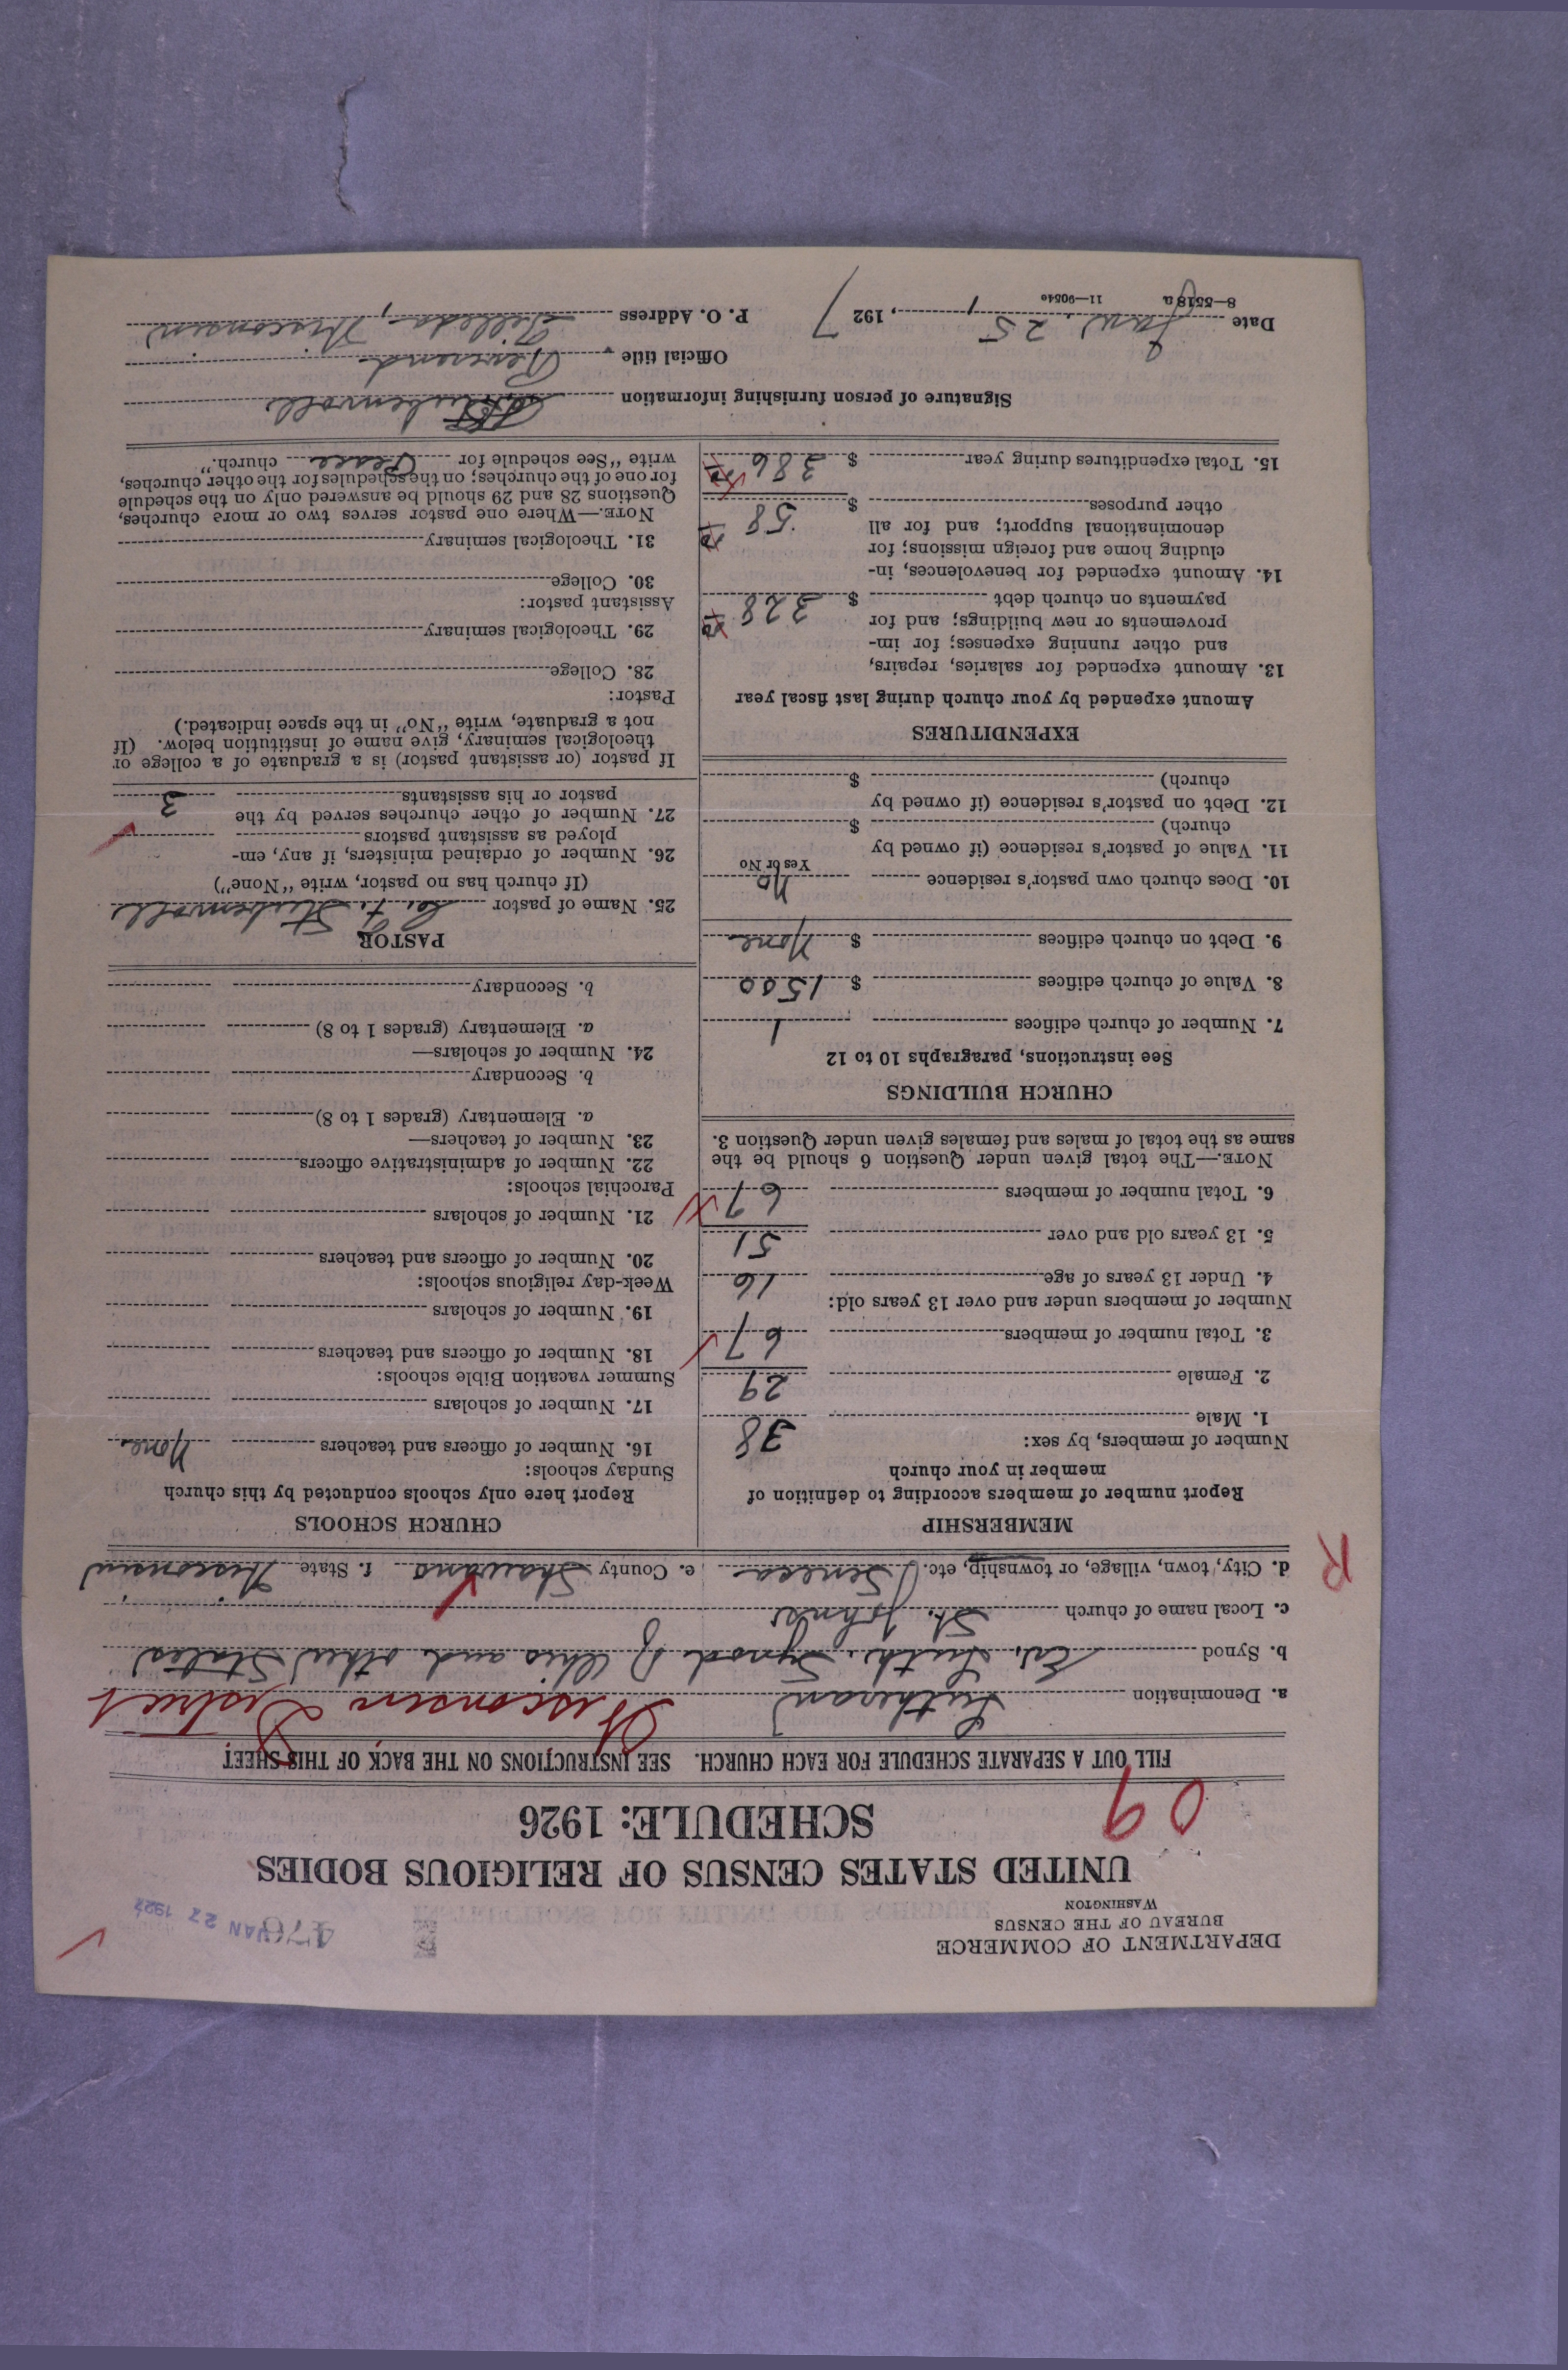 DEPARTMENT OF COMMERCE
BUREAU OF THE CENSUS
WASHINGTON
JAN 27 1927
UNITED STATES CENSUS OF RELIGIOUS BODIES
SCHEDULE: 1926
09
FILL OUT A SEPARATE SCHEDULE FOR EACH CHURCH. SEE INSTRUCTIONS ON THE BACK OF THIS SHEET
a. Denomination Lutheran Wisconsin District
b. Synod Ev. Luth. Synod of Ohio and other States
c. Local name of church St. Johns
d. City, town, village, or township, etc. Seneca e. County Shawano f. State Wisconsin
R
MEMBERSHIP
Report number of members according to definition of
member in your church
Number of members, by sex:
1. Male 38
2. Female 29
3. Total number of members 67
Number of members under and over 13 years old:
4. Under 13 years of age 16
5. 13 years old and over 51
6. Total number of members 67
NOTE.—The total given under Question 6 should be the
same as the total of males and females given under Question 3.
CHURCH BUILDINGS
See instructions, paragraphs 10 to 12
7. Number of church edifices 1
8. Value of church edifices $ 1500
9. Debt on church edifices $ None
10. Does church own pastor's residence No
Yes or No
11. Value of pastor's residence (if owned by
church) $
12. Debt on pastor's residence (if owned by
church) $
EXPENDITURES
Amount expended by your church during last fiscal year
13. Amount expended for salaries, repairs,
and other running expenses; for im-
provements or new buildings; and for
payments on church debt $ 328
14. Amount expended for benevolences, in-
cluding home and foreign missions; for
denominational support; and for all
other purposes $ 58
15. Total expenditures during year $ 386
CHURCH SCHOOLS
Report here only schools conducted by this church
Sunday schools:
16. Number of officers and teachers None
17. Number of scholars
Summer vacation Bible schools:
18. Number of officers and teachers
19. Number of scholars
Week-day religious schools:
20. Number of officers and teachers
21. Number of scholars
Parochial schools:
22. Number of administrative officers
23. Number of teachers—
a. Elementary (grades 1 to 8)
b. Secondary
24. Number of scholars—
a. Elementary (grades 1 to 8)
b. Secondary
PASTOR
25. Name of pastor Stubenvoll
(If church has no pastor, write "None")
26. Number of ordained ministers, if any, em-
ployed as assistant pastors
27. Number of other churches served by the
pastor or his assistants 3
If pastor (or assistant pastor) is a graduate of a college or
theological seminary, give name of institution below. (If
not a graduate, write "No" in the space indicated.)
Pastor:
28. College
29. Theological seminary
Assistant pastor:
30. College
31. Theological seminary
NOTE.—Where one pastor serves two or more churches,
Questions 28 and 29 should be answered only on the schedule
for one of the churches; on the schedules for the other churches,
write "See schedule for Peace church."
Signature of person furnishing information Stubenvoll
Official title Reverend
Date Jan. 25, 1927 P. O. Address Tilleda, Wisconsin
8—5518a 11—9054e